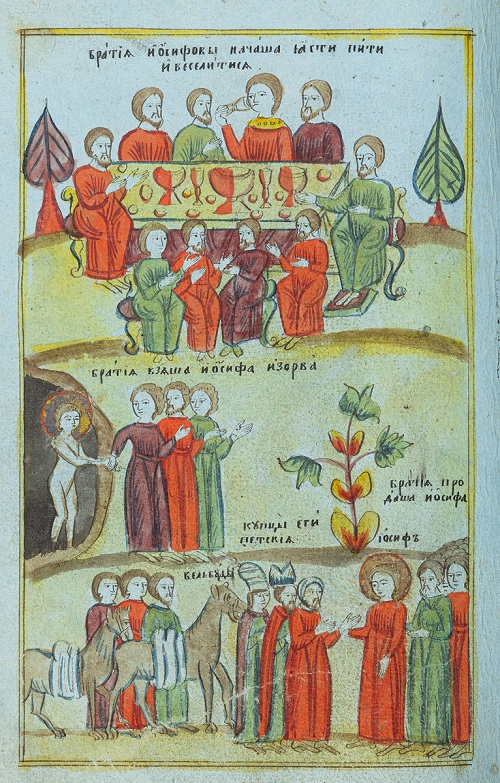 братїѧ иѡ҆сифовы начаша ꙗсти пити
и҆ веселитисѧ
братїѧ взѧша и҆ѡ҆сифа изорва
братїѧ про
даша иѡ҆сифа
купцы еги
петскїѧ
і҆осифъ
вельбуды